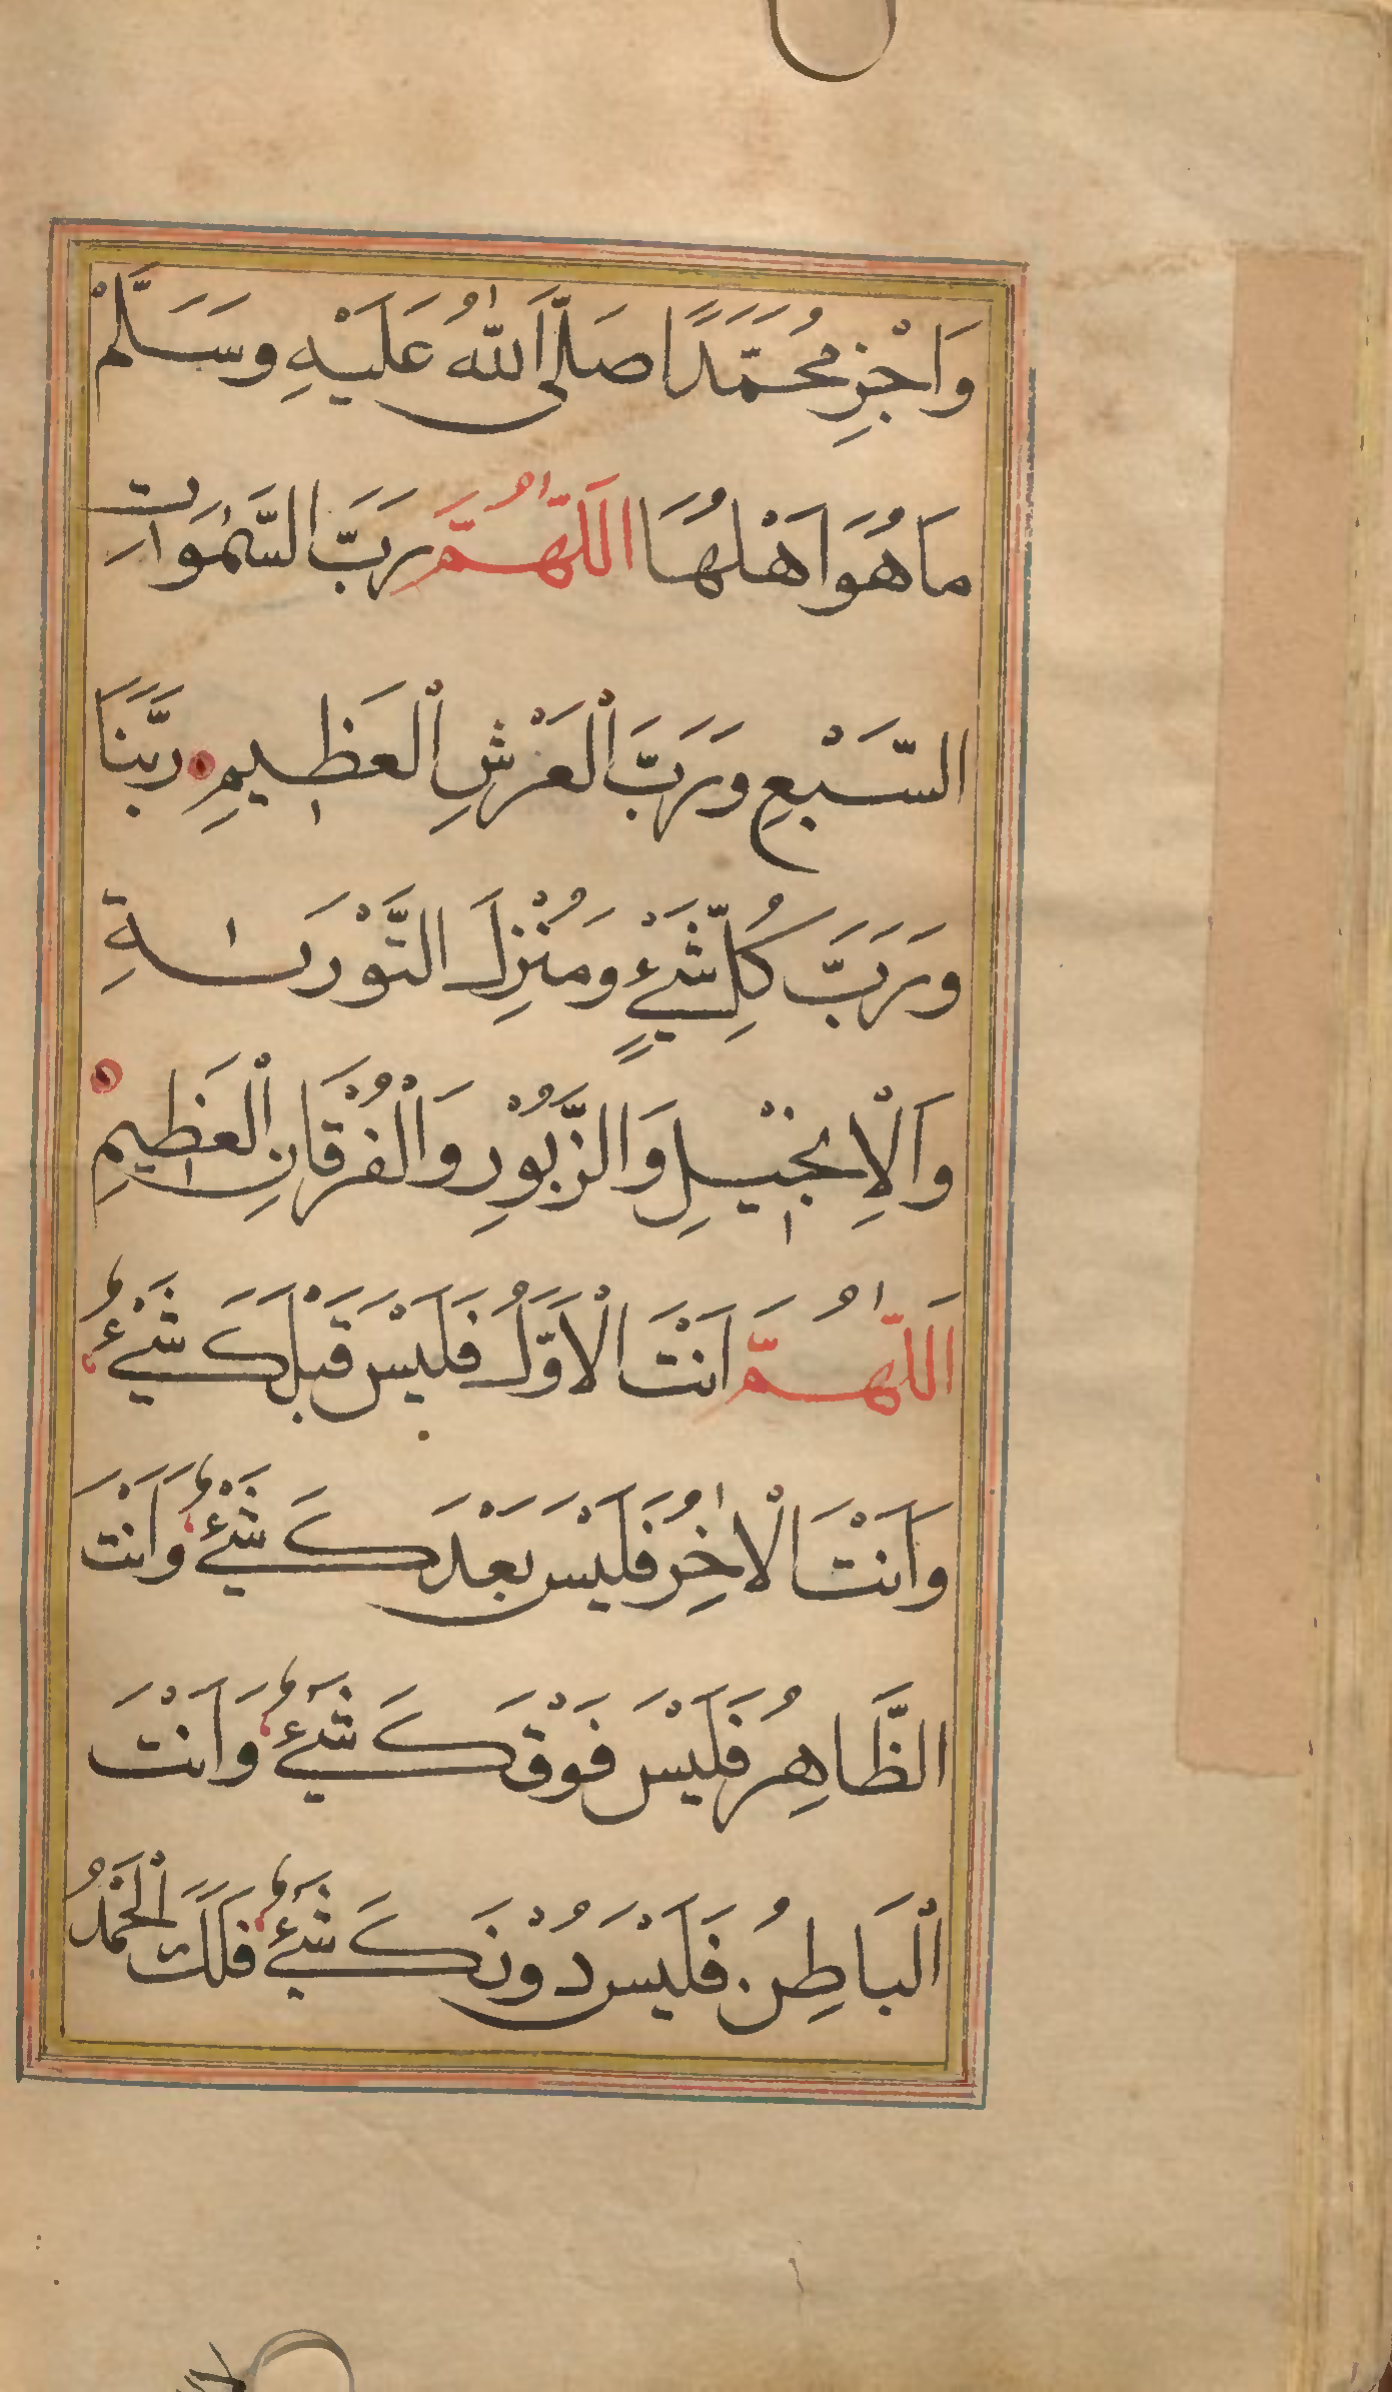 وَاجْزِ مُحَمَّدًا صَلَّى اللّٰهُ عَلَيْهِ وَسَلَّمْ
مَا هُوَ اَهْلُهَا اَللّٰهُمَّ رَبَّ السَّمٰوَاتِ
السَّبْعِ وَرَبَّ الْعَرْشِ الْعَظٖيمِ رَبَّنَا
وَرَبَّ كُلِّ شَيْءٍ وَمُنْزِلَ التَّوْرٰىةِ
وَالْاِنْجٖيلِ وَالزَّبُوْرِ وَالْفُرْقَانِ الْعَظٖيمِ
اَللّٰهُمَّ اَنْتَ الْاَوَّلُ فَلَيْسَ قَبْلَكَ شَيْءٌ
وَاَنْتَ الْاٰخِرُ فَلَيْسَ بَعْدَكَ شَيْءٌ وَاَنْتَ
الظَّاهِرُ فَلَيْسَ فَوْقَكَ شَيْءٌ وَاَنْتَ
الْبَاطِنُ فَلَيْسَ دُوْنَكَ شَيْءٌ فَلَكَ الْحَمْدُ